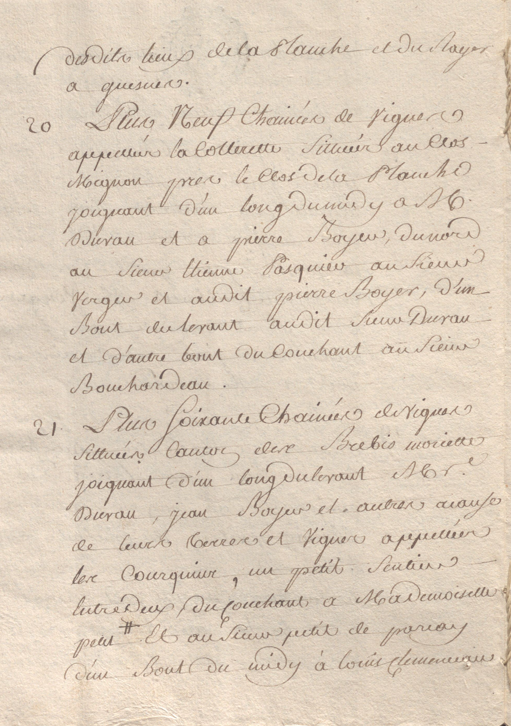 desdits lieux de la Planche et du Noyer
a quesnes.
20 Plus Neuf Chainées de Vignes
appellées la Collerette sittuées au Clos
Mignon pres le Clos de la Planche
joignant d'un long du midy a M.
Duvau et a pierre Boyer, du nord
au Sieur Etienne Pasquier au Sieur
Verger et audit pierre Boyer, d'un
Bout du levant audit Sieur Duvau
et d'autre bout du Couchant au Sieur
Bouchardeau.
21. Plus Soixante Chainées de vignes
sittuées Canton des Brebis
joignant d'un long du levant Mr.
Duvau, jean Boyer et autres a cause
de leurs terres et Vignes appellées
les , un petit Sentier
Entredeux, du Couchant a Mademoiselle
petit # Et au Sieur petit de parcay
d'un Bout du midy à louis Clemenceau